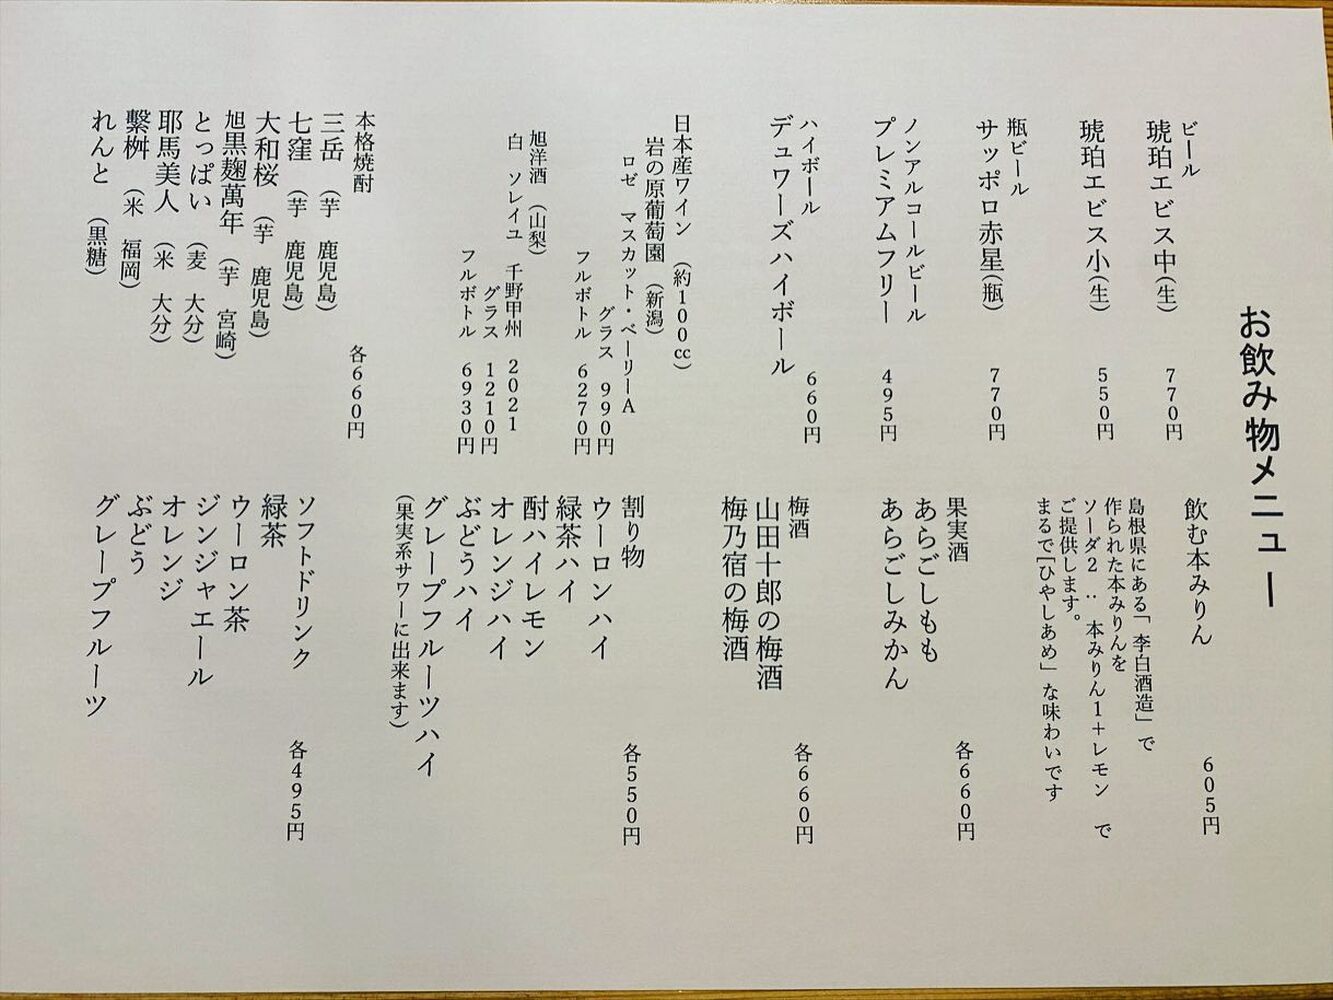 お飲み物メニュー
ビール
琥珀エビス中(生) 770円
琥珀エビス小(生) 550円
瓶ビール
サッポロ赤星(瓶) 770円
ノンアルコールビール
プレミアムフリー 495円
ハイボール 660円
デュワーズハイボール
日本産ワイン (約100cc)
岩の原葡萄園 (新潟)
ロゼ マスカット・ベーリーA
グラス 990円
フルボトル 6270円
旭洋酒 (山梨)
白 ソレイユ 千野甲州 2021
グラス 1210円
フルボトル 6930円
本格焼酎 各660円
三岳 (芋 鹿児島)
七窪 (芋 鹿児島)
大和桜 (芋 鹿児島)
旭黒麹萬年 (芋 宮崎)
とっぱい (麦 大分)
耶馬美人 (米 大分)
繋桝 (米 福岡)
れんと (黒糖)
飲む本みりん 605円
島根県にある「李白酒造」で
作られた本みりんを
ソーダ2:本みりん1+レモン で
ご提供します。
まるで「ひやしあめ」な味わいです
果実酒 各660円
あらごしもも
あらごしみかん
梅酒 各660円
山田十郎の梅酒
梅乃宿の梅酒
割り物 各550円
ウーロンハイ
緑茶ハイ
酎ハイレモン
オレンジハイ
ぶどうハイ
グレープフルーツハイ
(果実系サワーに出来ます)
ソフトドリンク 各495円
緑茶
ウーロン茶
ジンジャエール
オレンジ
ぶどう
グレープフルーツ